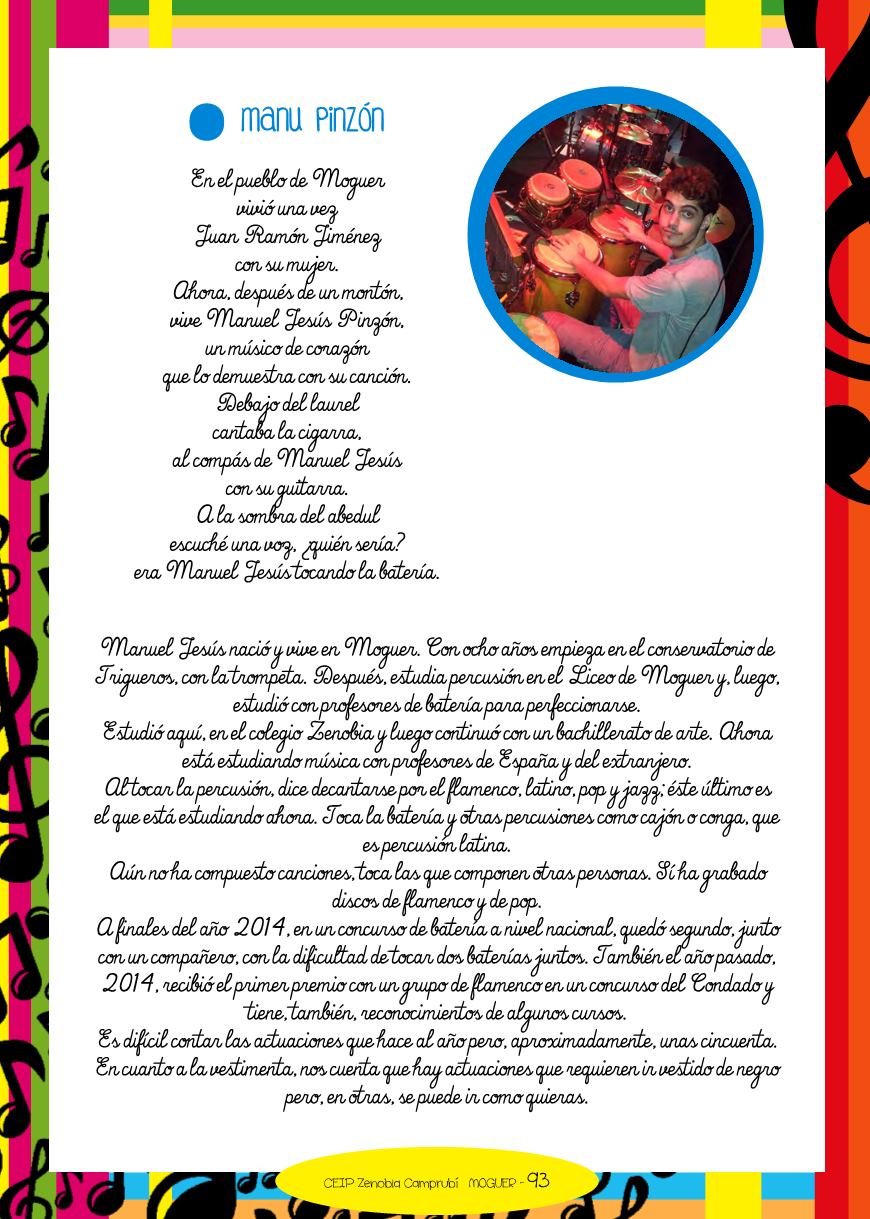 manu Pinzón
En el pueblo de Moguer
vivió una vez
Juan Ramón Jiménez
con su mujer.
Ahora, después de un montón,
vive Manuel Jesús Pinzón,
un músico de corazón
que lo demuestra con su canción.
Debajo del laurel
cantaba la cigarra,
al compás de Manuel Jesús
con su guitarra.
A la sombra del abedul
escuché una voz, ¿quién sería?
era Manuel Jesús tocando la batería.
Manuel Jesús nació y vive en Moguer. Con ocho años empieza en el conservatorio de
Trigueros, con la trompeta. Después, estudia percusión en el Liceo de Moguer y, luego,
estudió con profesores de batería para perfeccionarse.
Estudió aquí, en el colegio Zenobia y luego continuó con un bachillerato de arte. Ahora
está estudiando música con profesores de España y del extranjero.
Al tocar la percusión, dice decantarse por el flamenco, latino, pop y jazz; éste último es
el que está estudiando ahora. Toca la batería y otras percusiones como cajón o conga, que
es percusión latina.
Aún no ha compuesto canciones, toca las que componen otras personas. Sí ha grabado
discos de flamenco y de pop.
A finales del año 2014, en un concurso de batería a nivel nacional, quedó segundo, junto
con un compañero, con la dificultad de tocar dos baterías juntos. También el año pasado,
2014, recibió el primer premio con un grupo de flamenco en un concurso del Condado y
tiene, también, reconocimientos de algunos cursos.
Es difícil contar las actuaciones que hace al año pero, aproximadamente, unas cincuenta.
En cuanto a la vestimenta, nos cuenta que hay actuaciones que requieren ir vestido de negro
pero, en otras, se puede ir como quieras.
CEIP Zenobia Camprubí MOGUER - 93